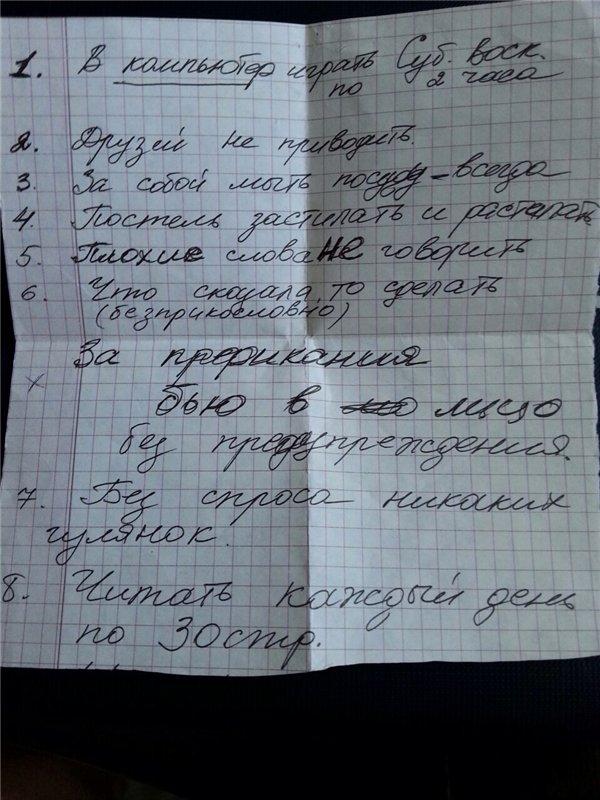 1. В компьютер играть Суб. воск.
по 2 часа
2. Друзей не приводить.
3. За собой мыть посуду - всегда
4. Постель застилать и расталать
5. Плохие слова не говорить
6. Что сказала, то сделать
(безприкословно)
За преринания
бью в лицо
без предупреждения.
7. Без спроса никаких
гулянок.
8. Читать каждый день
по 30 стр.